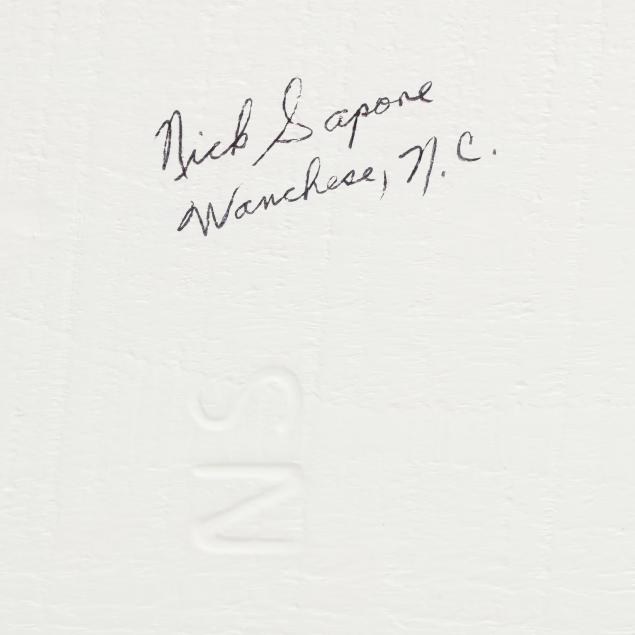 Nick Sapone
Wanchese, N.C.
NS